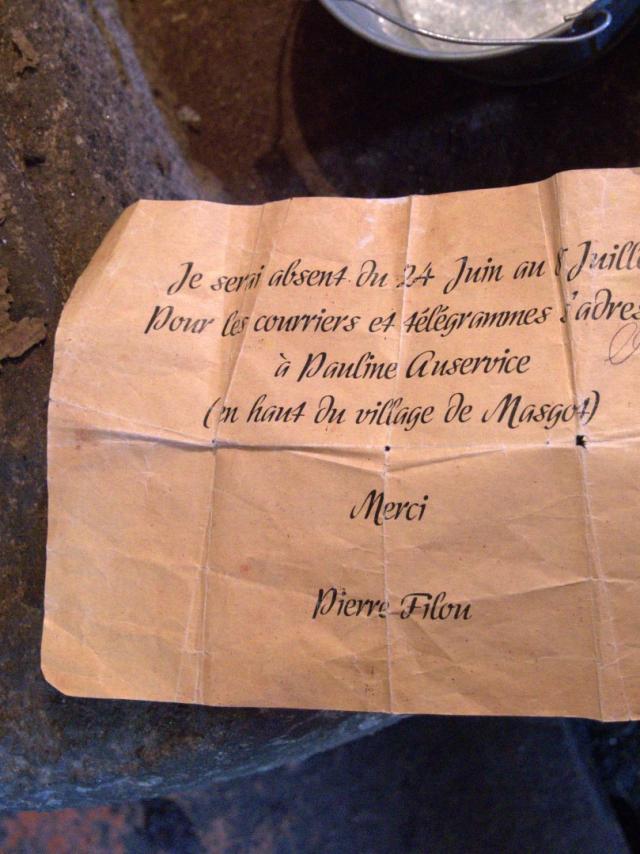 Je serai absent du 24 Juin au 8 Juille
Pour les courriers et télégrammes s'adres
à Pauline Auservice
(en haut du village de Masgot)
Merci
Pierre Filou